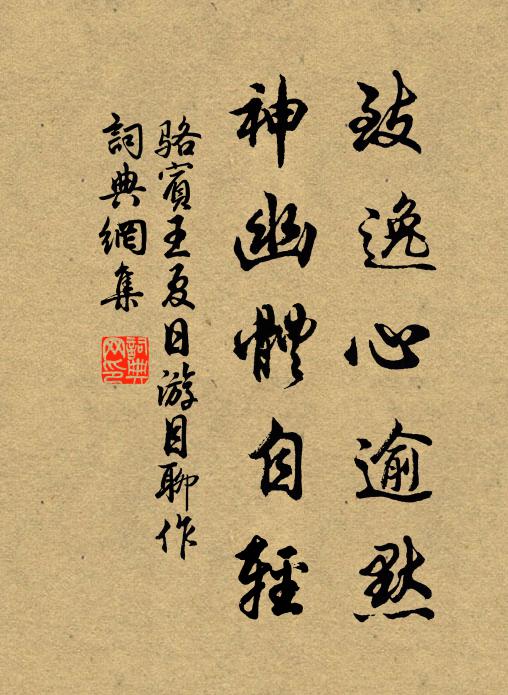 致逸心逾默
神幽體自輕
駱賓王夏日游目聊作
詞典網集
詞典网印